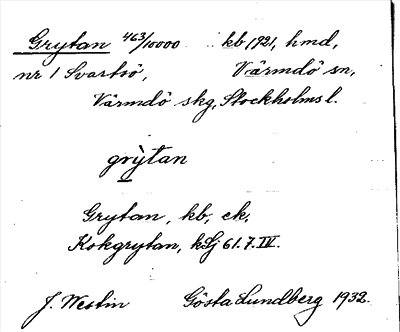 Grytan 463/10000 kb 1921, hmd,
nr 1 Svartsö, Värmdö sn,
Värmdö skg, Stockholms l.
grỳtan
Grytan, kb, ek,
Kokgrytan, kSj 61.7.IV.
J. Westin Gösta Lundberg 1932.